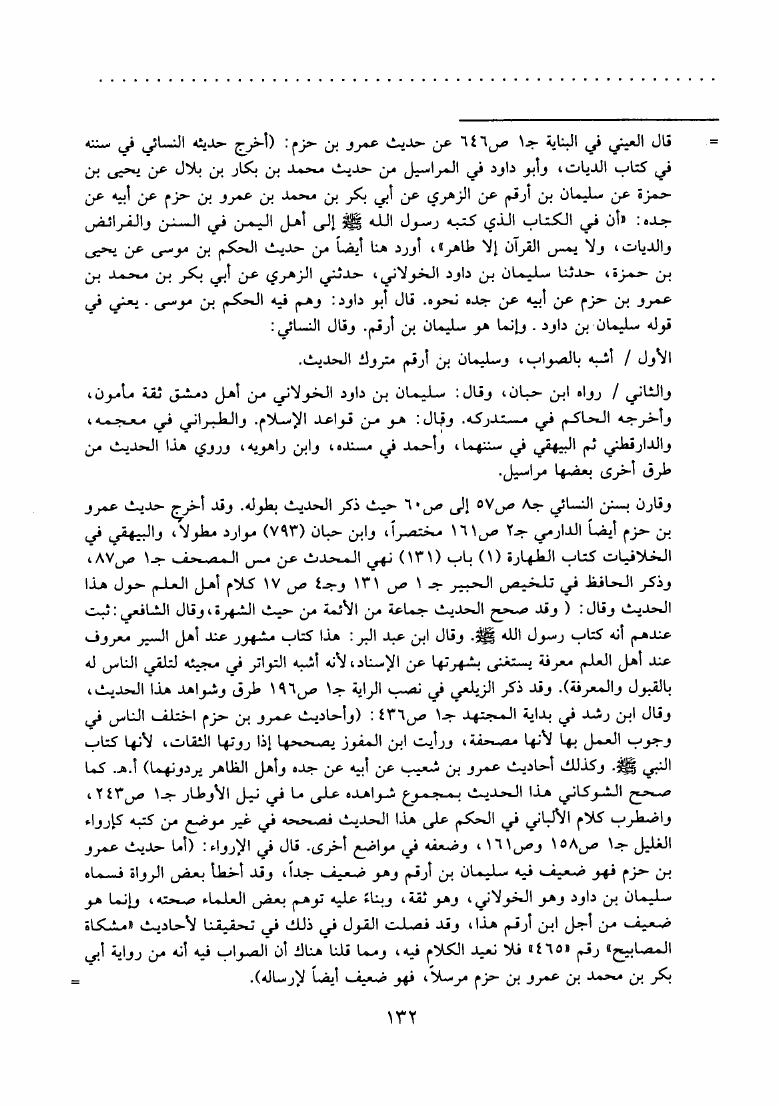 = قال العيني في البناية جـ١ ص٦٤٦ عن حديث عمرو بن حزم: (أخرج حديثه النسائي في سننه
في كتاب الديات، وأبو داود في المراسيل من حديث محمد بن بكار بن بلال عن يحيى بن
حمزة عن سليمان بن أرقم عن الزهري عن أبي بكر بن محمد بن عمرو بن حزم عن أبيه عن
جده: «أن في الكتاب الذي كتبه رسول الله ﷺ إلى أهل اليمن في السنن والفرائض
والديات، ولا يمس القرآن إلا طاهر»، أورد هنا أيضاً من حديث الحكم بن موسى عن يحيى
بن حمزة، حدثنا سليمان بن داود الخولاني، حدثني الزهري عن أبي بكر بن محمد بن
عمرو بن حزم عن أبيه عن جده نحوه. قال أبو داود: وهم فيه الحكم بن موسى. يعني في
قوله سليمان بن داود. وإنما هو سليمان بن أرقم. وقال النسائي:
الأول / أشبه بالصواب، وسليمان بن أرقم متروك الحديث.
والثاني / رواه ابن حبان، وقال: سليمان بن داود الخولاني من أهل دمشق ثقة مأمون،
وأخرجه الحاكم في مستدركه. وقال: هو من قواعد الإسلام. والطبراني في معجمه،
والدارقطني ثم البيهقي في سننهما، وأحمد في مسنده، وابن راهويه، وروي هذا الحديث من
طرق أخرى بعضها مراسيل.
وقارن بسنن النسائي جـ٨ ص٥٧ إلى ص٦٠ حيث ذكر الحديث بطوله. وقد أخرج حديث عمرو
بن حزم أيضاً الدارمي جـ٢ ص١٦١ مختصراً، وابن حبان (٧٩٣) موارد مطولاً، والبيهقي في
الخلافيات كتاب الطهارة (١) باب (١٣١) نهي المحدث عن مس المصحف جـ١ ص٨٧،
وذكر الحافظ في تلخيص الحبير جـ ١ ص ١٣١ وجـ٤ ص ١٧ كلام أهل العلم حول هذا
الحديث وقال: ( وقد صحح الحديث جماعة من الأئمة من حيث الشهرة، وقال الشافعي: ثبت
عندهم أنه كتاب رسول الله ﷺ. وقال ابن عبد البر: هذا كتاب مشهور عند أهل السير معروف
عند أهل العلم معرفة يستغنى بشهرتها عن الإسناد، لأنه أشبه التواتر في مجيئه لتلقي الناس له
بالقبول والمعرفة). وقد ذكر الزيلعي في نصب الراية جـ١ ص١٩٦ طرق وشواهد هذا الحديث،
وقال ابن رشد في بداية المجتهد جـ١ ص٤٣٦: (وأحاديث عمرو بن حزم اختلف الناس في
وجوب العمل بها لأنها مصحفة، ورأيت ابن المفوز يصححها إذا روتها الثقات، لأنها كتاب
النبي ﷺ. وكذلك أحاديث عمرو بن شعيب عن أبيه عن جده وأهل الظاهر يردونهما) أ.هـ. كما
صحح الشوكاني هذا الحديث بمجموع شواهده على ما في نيل الأوطار جـ١ ص٢٤٣،
واضطرب كلام الألباني في الحكم على هذا الحديث فصححه في غير موضع من كتبه كإرواء
الغليل جـ١ ص١٥٨ وص١٦١، وضعفه في مواضع أخرى. قال في الإرواء: (أما حديث عمرو
بن حزم فهو ضعيف فيه سليمان بن أرقم وهو ضعيف جداً، وقد أخطأ بعض الرواة فسماه
سليمان بن داود وهو الخولاني، وهو ثقة، وبناءً عليه توهم بعض العلماء صحته، وإنما هو
ضعيف من أجل ابن أرقم هذا، وقد فصلت القول في ذلك في تحقيقنا لأحاديث «مشكاة
المصابيح» رقم «٤٦٥» فلا نعيد الكلام فيه، ومما قلنا هناك أن الصواب فيه أنه من رواية أبي
بكر بن محمد بن عمرو بن حزم مرسلاً، فهو ضعيف أيضاً لإرساله). =
١٣٢